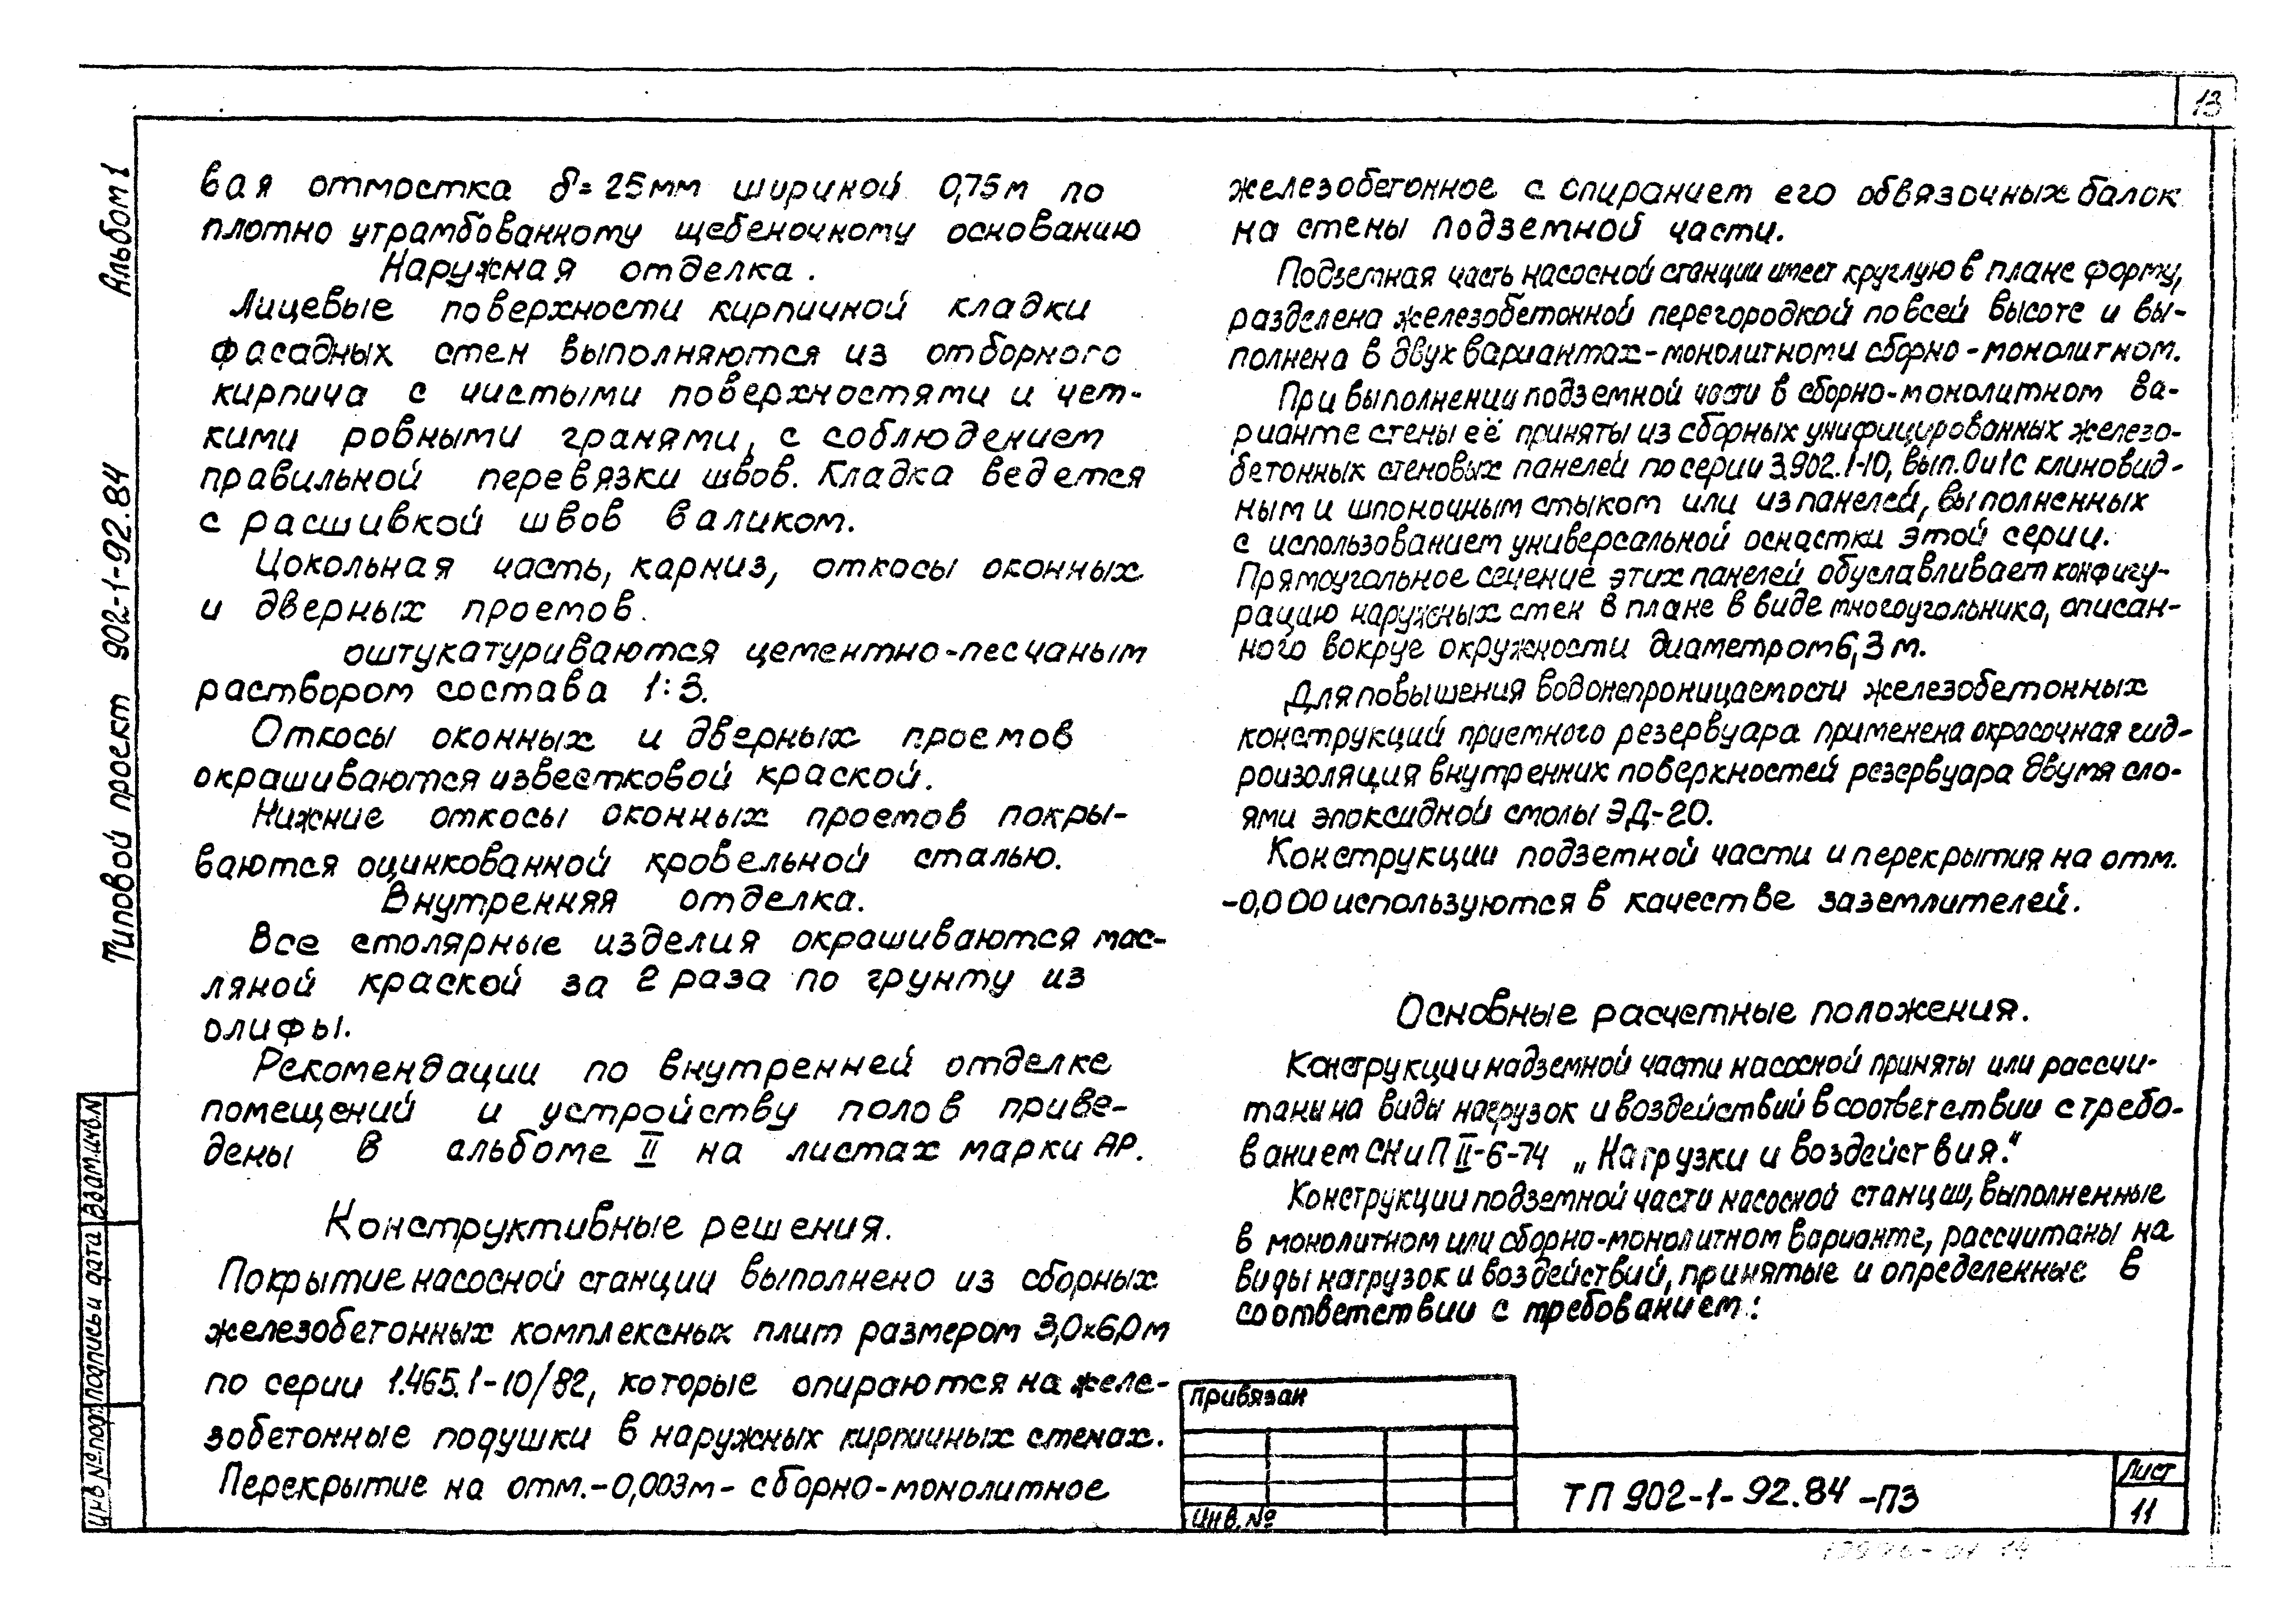 13
Альбом 1
Типовой проект 902-1-92.84
вая отмостка δ=25мм шириной 0,75м по
плотно утрамбованному щебеночному основанию
Наружная отделка.
Лицевые поверхности кирпичной кладки
фасадных стен выполняются из отборного
кирпича с чистыми поверхностями и чет-
кими ровными гранями, с соблюдением
правильной перевязки швов. Кладка ведется
с расшивкой швов валиком.
Цокольная часть, карниз, откосы оконных
и дверных проемов.
оштукатуриваются цементно-песчаным
раствором состава 1:3.
Откосы оконных и дверных проемов
окрашиваются известковой краской.
Нижние откосы оконных проемов покры-
ваются оцинкованной кровельной сталью.
Внутренняя отделка.
Все столярные изделия окрашиваются мас-
ляной краской за 2 раза по грунту из
олифы.
Рекомендации по внутренней отделке
помещений и устройству полов приве-
дены в альбоме II на листах марки АР.
Конструктивные решения.
Покрытие насосной станции выполнено из сборных
железобетонных комплексных плит размером 3,0х6,0м
по серии 1.465.1-10/82, которые опираются на желе-
зобетонные подушки в наружных кирпичных стенах.
Перекрытие на отм.-0,003м- сборно-монолитное
железобетонное с опиранием его обвязочных балок
на стены подземной части.
Подземная часть насосной станции имеет круглую в плане форму,
разделена железобетонной перегородкой по всей высоте и вы-
полнена в двух вариантах-монолитном и сборно-монолитном.
При выполнении подземной части в сборно-монолитном ва-
рианте стены её приняты из сборных унифицированных железо-
бетонных стеновых панелей по серии 3.902.1-10, вып.0и1с клиновид-
ным и шпоночным стыком или из панелей, выполненных
с использованием универсальной оснастки этой серии.
Прямоугольное сечение этих панелей обуславливает конфигу-
рацию наружных стен в плане в виде многоугольника, описан-
ного вокруг окружности диаметром 6,3 м.
Для повышения водонепроницаемости железобетонных
конструкций приемного резервуара применена окрасочная гид-
роизоляция внутренних поверхностей резервуара двумя сло-
ями эпоксидной смолы ЭД-20.
Конструкции подземной части и перекрытия на отм.
-0,000 используются в качестве заземлителей.
Основные расчетные положения.
Конструкции надземной части насосной приняты или рассчи-
таны на виды нагрузок и воздействий в соответствии с требо-
ванием СНиП II-6-74 „Нагрузки и воздействия."
Конструкции подземной части насосной станции, выполненные
в монолитном или сборно-монолитном варианте, рассчитаны на
виды нагрузок и воздействий, принятые и определенные в
соответствии с требованием:
Взам.инв.N
Подпись и дата
Инв №под.
привязан
Инв. №
ТП 902-1-92.84-ПЗ
Лист
11